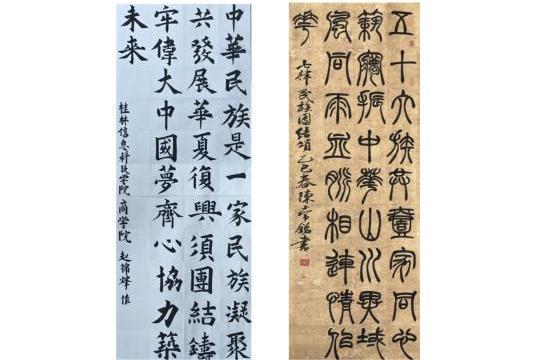 中華民族是一家民族凝聚
共發展華夏復興須團結鑄
牢偉大中國夢齊心協力築
未來
桂林信息科技学院 商学院 赵锦 作
五十六族共壹家同心
築夢振中華山川異域
風同雨並脈相連情似
花
七律 民族團結頌 乙巳春陳書